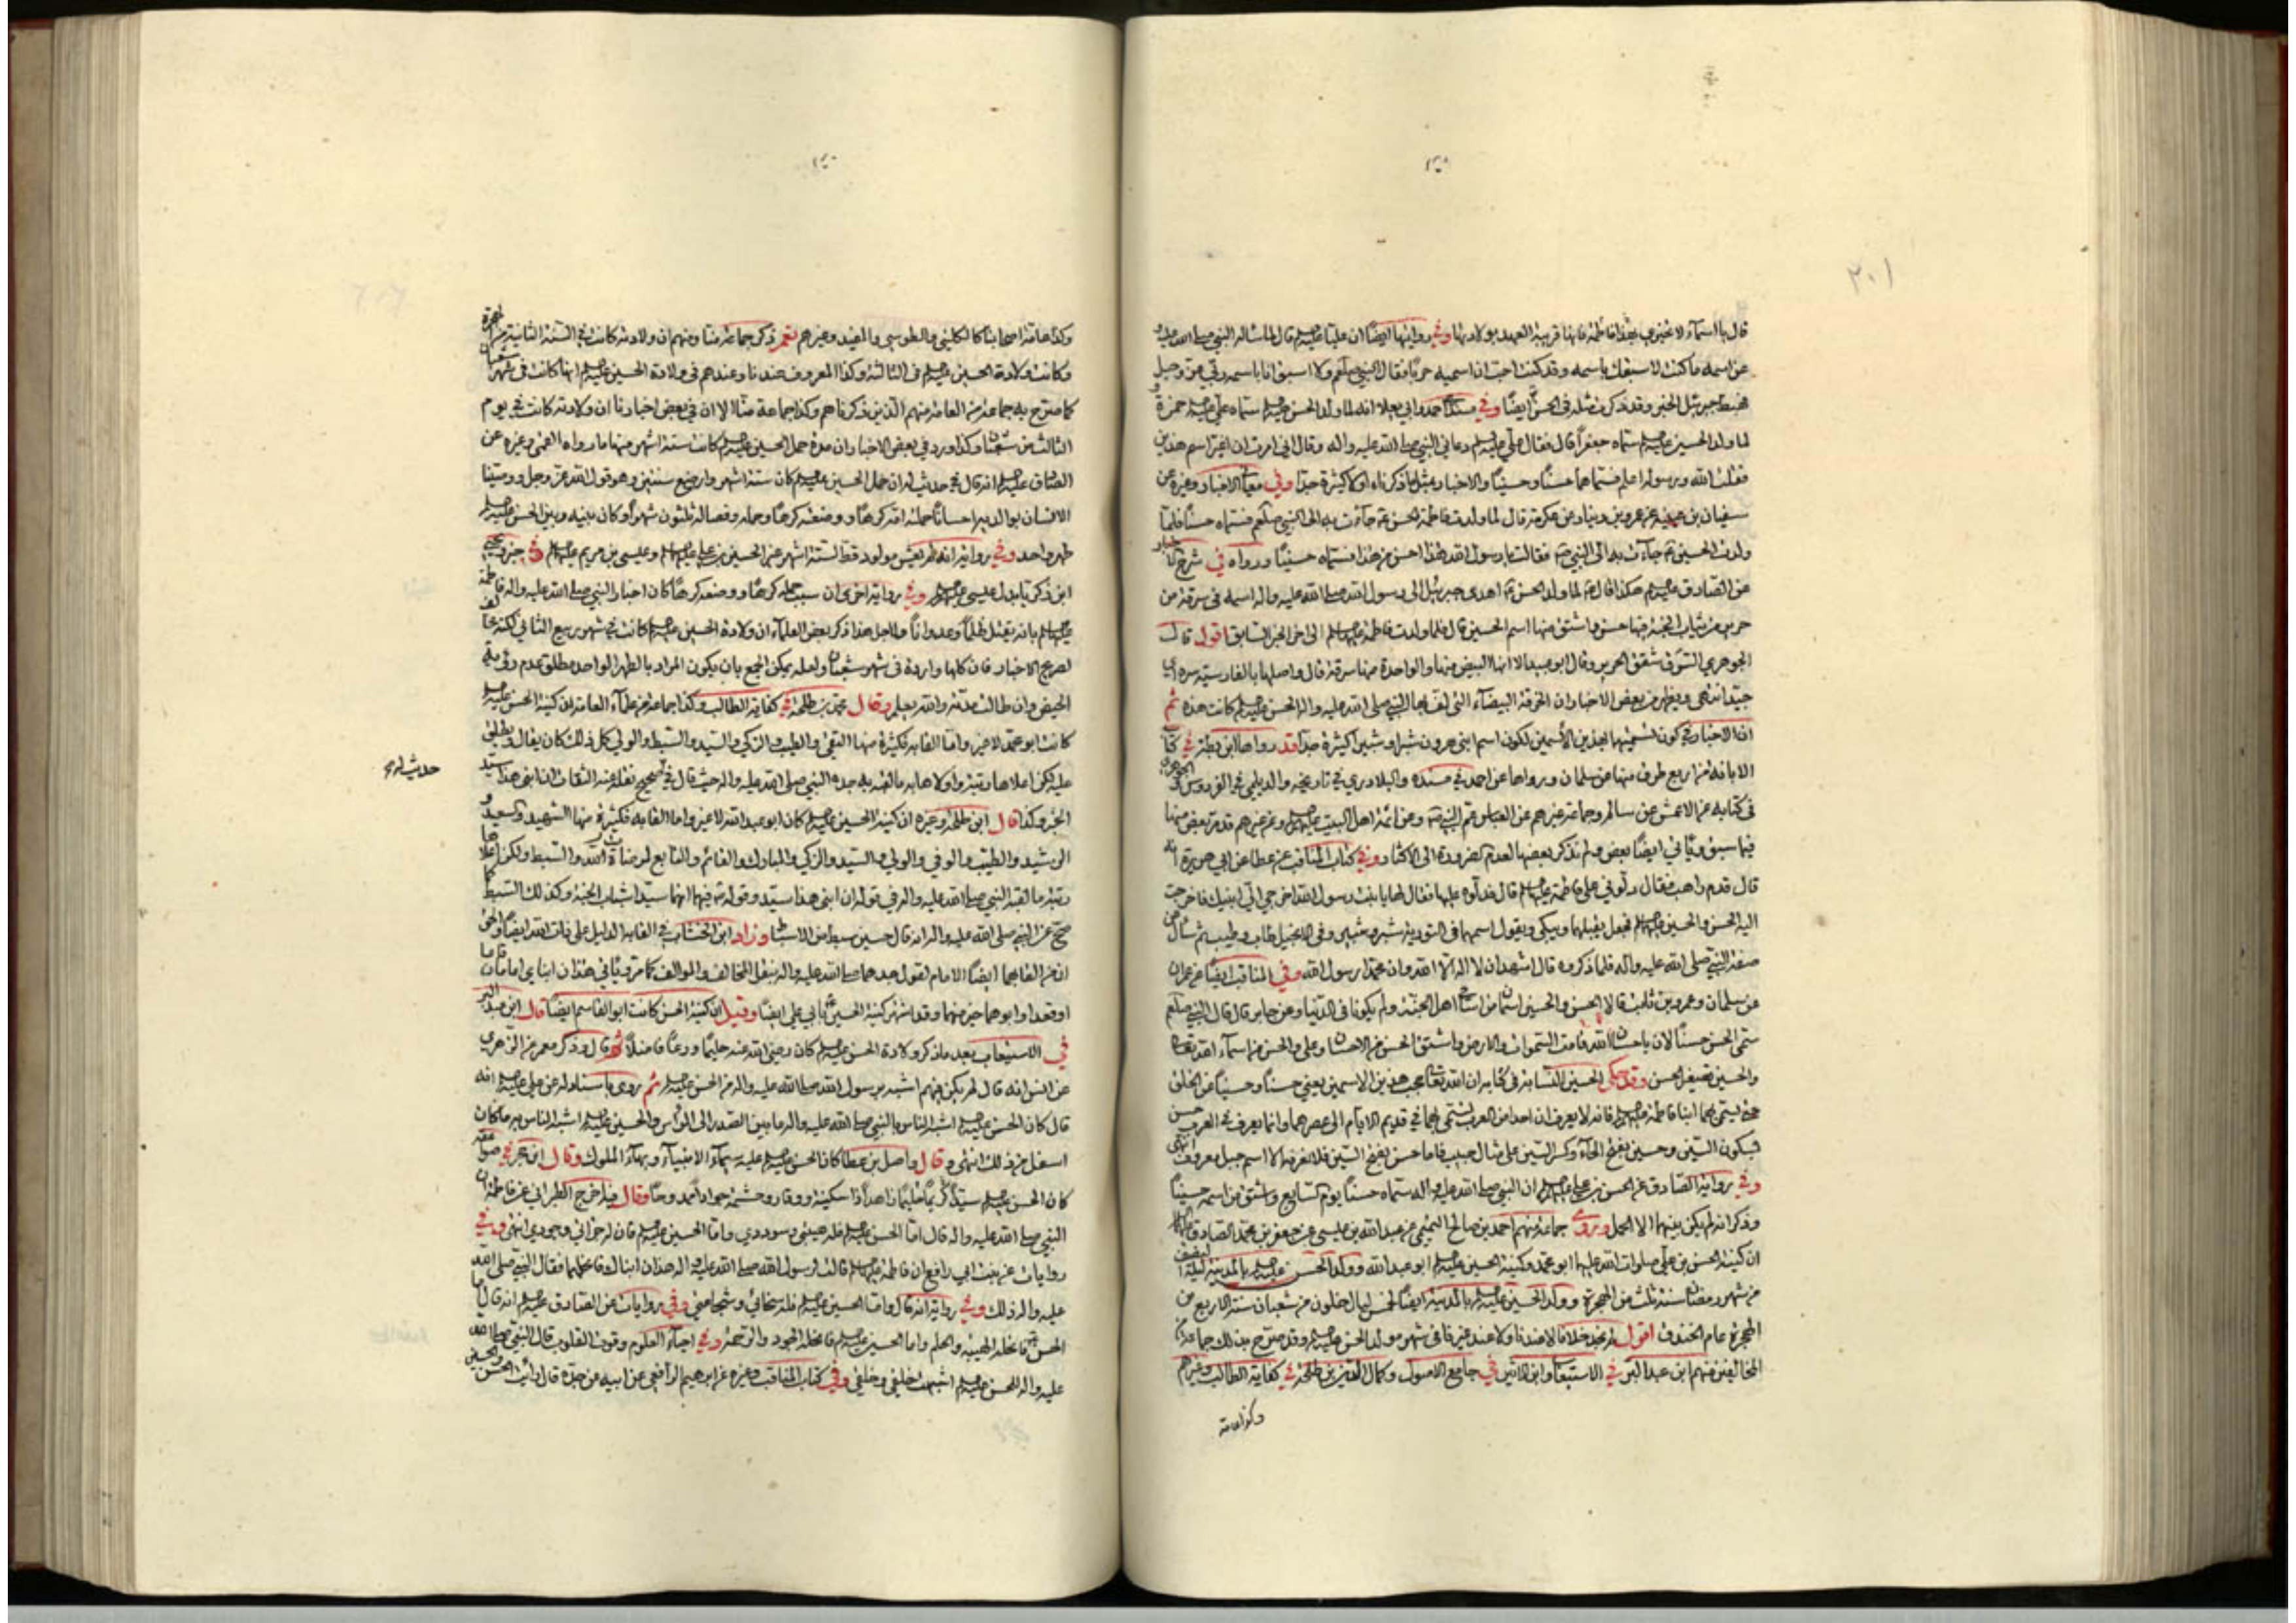 ٢٠١
قال يا اسماء لا تخبري بهذا فاطمة فانها قريبة العهد بولادتها وفي روايتها ايضا ان عليا عليه السلم قال لما سأله النبي صلى الله عليه و
عن اسمه ما كنت لاسبقك باسمه وقد كنت احب ان اسميه حربا فقال النبي صلعم ولا اسبق انا باسمه ربي عز وجل
فهبط جبرئيل الخبر وقد ذكر مثله في الحسن ايضا وفي مسند احمد وابي يعلا انه لما ولد الحسن عليه السلم سماه علي عليه السلم حمزة و
لما ولد الحسين عليه السلم سماه جعفرا قال فقال علي عليه السلم دعاني النبي صلى الله عليه واله وقال اني امرت ان اغير اسم هذين
فقلت الله ورسوله اعلم فسماهما حسنا وحسينا والاخبار بمثل ما ذكرناه اولا كثيرة جدا وفي معاني الاخبار وغيره عن
سفيان بن عيينه عن عمرو بن دينار عن عكرمة قال لما ولدت فاطمة الحسن ع جاءت به الى النبي صلعم فسماه حسنا فلما
ولدت الحسين ع جاءت به الى النبي ص فقالت يا رسول الله هذا احسن من هذا فسماه حسينا ورواه في شرح الاخبار
عن الصادق عليه السلم هكذا قال ع لما ولد الحسن ع اهدى جبرئيل الى رسول الله صلى الله عليه واله اسمه في سرقة من
حرير من ثياب الجنة فيها حسن واشتق منها اسم الحسين قال فلما ولدت فاطمة عليها السلم الى اخر الخبر السابق اقول قال
الجوهري السرق شقق الحرير وقال ابو عبيد الا انها البيض منها والواحدة منها سرقة قال واصلها بالفارسية سره اي
جيد انتهى ويظهر من بعض الاخبار ان الخرقة البيضاء التي لف بها النبي صلى الله عليه واله الحسن عليه السلم كانت هذه ثم
ان الاخبار في كون تسميتها بهذين الاسمين لكون اسم ابني هرون شبرا وشبيرا كثيرة جدا قد رواها ابن بطة في كتاب
الابانه من اربع طرق منها عن سلمان ورواها عن احمد في مسنده والبلادري في تاريخه والديلمي في الفردوس والجوهري
في كتابه عن الاعمش عن سالم وجماعة غيرهم عن العباس عم النبي ص وعن ائمة اهل البيت عليهم السلم وعن غيرهم قد مر بعض منها
فيما سبق ويأتي ايضا بعض ولم نذكر بعضها لعدم الضرورة الى الاكثار وفي كتاب المناقب عن عطا عن ابي هريرة انه
قال قدم راهب فقال دلوني على فاطمة عليها السلم قال فدلوه عليها فقال لها يا بنت رسول الله اخرجي الي ابنيك فاخرجت
اليه الحسن والحسين عليهما السلم فجعل يقبلهما ويبكي ويقول اسمهما في التورية شبر وشبير وفي الانجيل طاب وطيب ثم سأل عن
صفة النبي صلى الله عليه واله فلما ذكروه قال اشهد ان لا اله الا الله وان محمدا رسول الله وفي المناقب ايضا عن عمران
عن سلمان وعمرو بن ثابت قالا الحسن والحسين اسمان من اسامي اهل الجنة ولم يكونا في الدنيا وعن جابر قال قال النبي صلعم
سمي الحسن حسنا لان باحسان الله قامت السموات والارض واشتق الحسن من الاحسان وعلي والحسن من اسماء الله تعالى
والحسين تصغير الحسن وقد حكى الحسين النسابة في كتابه ان الله تعالى حجب هذين الاسمين يعني حسنا وحسينا عن الخلق
حتى يسمي بهما ابنا فاطمة عليها السلم فانه لا يعرف ان احدا من العرب تسمى بهما في قديم الايام الى عصرهما وانما يعرف في العرب حسن
بسكون السين وحسين بفتح الحاء وكسر السين على مثال حبيب فاما حسن بفتح السين فلا نعرفه الا اسم جبل معروف انتهى
وفي رواية الصادق عن الحسن بن علي عليهم السلم ان النبي صلى الله عليه واله سماه حسنا يوم السابع واشتق من اسمه حسينا
وذكر انه لم يكن بينهما الا الحمل وروى جماعة منهم احمد بن صالح التميمي عن عبد الله بن عيسى عن جعفر بن محمد الصادق عليه السلم
ان كنية الحسن بن علي صلوات الله عليهما ابو محمد وكنية الحسين عليه السلم ابو عبد الله وولد الحسن عليه السلم بالمدينة ليلة النصف
من شهر رمضان سنة ثلث من الهجرة وولد الحسين عليه السلم بالمدينة ايضا لخمس ليال خلون من شعبان سنة الاربع من
الهجرة عام الخندق اقول لم نجد خلافا لا عندنا ولا عند غيرنا في شهر مولد الحسن عليه السلم وقد صرح بذلك جماعة من
المخالفين منهم ابن عبد البر في الاستيعاب وابن الاثير في جامع الاصول وكمال الدين بن طلحة في كفاية الطالب وغيرهم
وكذا عامة
وكذا عامة اصحابنا كالكليني والطوسي والمفيد وغيرهم نعم ذكر جماعة منا ومنهم ان ولادته كانت في السنة الثانية من الهجرة
وكانت ولادة الحسين عليه السلم في الثالثة وكذا المعروف عندنا وعندهم في ولادة الحسين عليه السلم انها كانت في شهر شعبان
كما صرح به جماعة من العامة منهم الذين ذكرناهم وكذا جماعة منا الا ان في بعض اخبارنا ان ولادته كانت في يوم
الثالث من شعبان وكذا ورد في بعض الاخبار ان مدة حمل الحسين عليه السلم كانت ستة اشهر منها ما رواه القمي وغيره عن
الصادق عليه السلم انه قال في حديث له ان حمل الحسين عليه السلم كان ستة اشهر وارضع سنتين وهو قول الله عز وجل ووصينا
الانسان بوالديه احسانا حملته امه كرها ووضعته كرها وحمله وفصاله ثلثون شهرا وكان بينه وبين الحسن عليه السلم
طهر واحد وفي رواية انه لم يعش مولود قط لستة اشهر غير الحسين بن علي عليهما السلم وعيسى بن مريم عليهما السلم وفي خبر يحيى
ابن زكريا بدل عيسى عليه السلم وفي رواية اخرى ان سبب حمله كرها ووضعه كرها كان اخبار النبي صلى الله عليه واله فاطمة
عليها السلم بانه يقتل ظلما وعدوانا ولاجل هذا ذكر بعض العلماء ان ولادة الحسين عليه السلم كانت في شهر ربيع الثاني لكنه مخالف
لصريح الاخبار فان كلها واردة في شهر شعبان ولعله يمكن الجمع بان يكون المراد بالطهر الواحد مطلق عدم رؤية
الحيض وان طالت مدته والله يعلم وقال محمد بن طلحة في كفاية الطالب وكذا جماعة من علماء العامة ان كنية الحسن عليه السلم
كانت ابو محمد لا غير واما القابه فكثيرة منها التقي والطيب والزكي والسيد والسبط والولي كل ذلك كان يقال ويطلق
عليه لكن اعلاها رتبة واولاها به ما لقبه به جده النبي صلى الله عليه واله حيث قال في صحيح نقله عنه الثقات ان ابني هذا سيد
الخبر وكذا قال ابن طلحة وغيره ان كنية الحسين عليه السلم كان ابو عبد الله لا غير واما القابه فكثيرة منها الشهيد والسعيد و
الرشيد والطيب والوفي والولي والسيد والزكي والمبارك والقائم والتابع لمرضاة الله والسبط ولكن اعلاها
رتبة ما لقبه النبي صلى الله عليه واله في قوله ان ابني هذا سيد وقوله فيهما انهما سيدا شباب الجنة وكذلك السبط كما
صح عن النبي صلى الله عليه واله انه قال حسين سبط من الاسباط وزاد ابن الخشاب في القابه الدليل على ذات الله ايضا والحق
ان من القابهما ايضا الامام لقول جدهما صلى الله عليه واله بنقل المخالف والموالف كما مر ويأتي هذان ابناي امامان قاما
او قعدا وابوهما خير منهما وقد اشتهر كنية الحسين بابي علي ايضا وقيل ان كنية الحسن كانت ابو القاسم ايضا قال ابن عبد البر
في الاستيعاب بعد ما ذكر ولادة الحسن عليه السلم كان رضي الله عنه حليما ورعا فاضلا ثم قال وذكر معمر عن الزهري
عن انس انه قال لم يكن فيهم اشبه برسول الله صلى الله عليه واله من الحسن عليه السلم ثم روى باسناد له عن علي عليه السلم انه
قال كان الحسن عليه السلم اشبه الناس بالنبي صلى الله عليه واله ما بين الصدر الى الرأس والحسين عليه السلم اشبه الناس به ما كان
اسفل من ذلك انتهى وقال واصل بن عطا كان الحسن عليه السلم عليه سيماء الانبياء وبهاء الملوك وقال ابن حجر في صواعقه
كان الحسن عليه السلم سيدا كريما حليما زاهدا ذا سكينة ووقار وحشمة جوادا ممدوحا وقال فيه اخرج الطبراني عن فاطمة ان
النبي صلى الله عليه واله قال اما الحسن عليه السلم فله هيبتي وسوددي واما الحسين عليه السلم فان له جرأتي وجودي انتهى وفي
روايات عن بنت ابي رافع ان فاطمة عليها السلم قالت لرسول الله صلى الله عليه واله هذان ابناك فانحلهما فقال النبي صلى الله
عليه واله ذلك وفي رواية انه قال واما الحسين عليه السلم فله سخائي وشجاعتي وفي روايات عن الصادق عليه السلم انه قال اما
الحسن فانحله الهيبة والحلم واما الحسين عليه السلم فانحله الجود والرحمة وفي احياء العلوم وقوت القلوب قال النبي صلى الله
عليه واله للحسن عليه السلم اشبهت خلقي وخلقي وفي كتاب المناقب وغيره عن ابرهيم الرافعي عن ابيه عن جدته قال رأيت الحسن والحسين